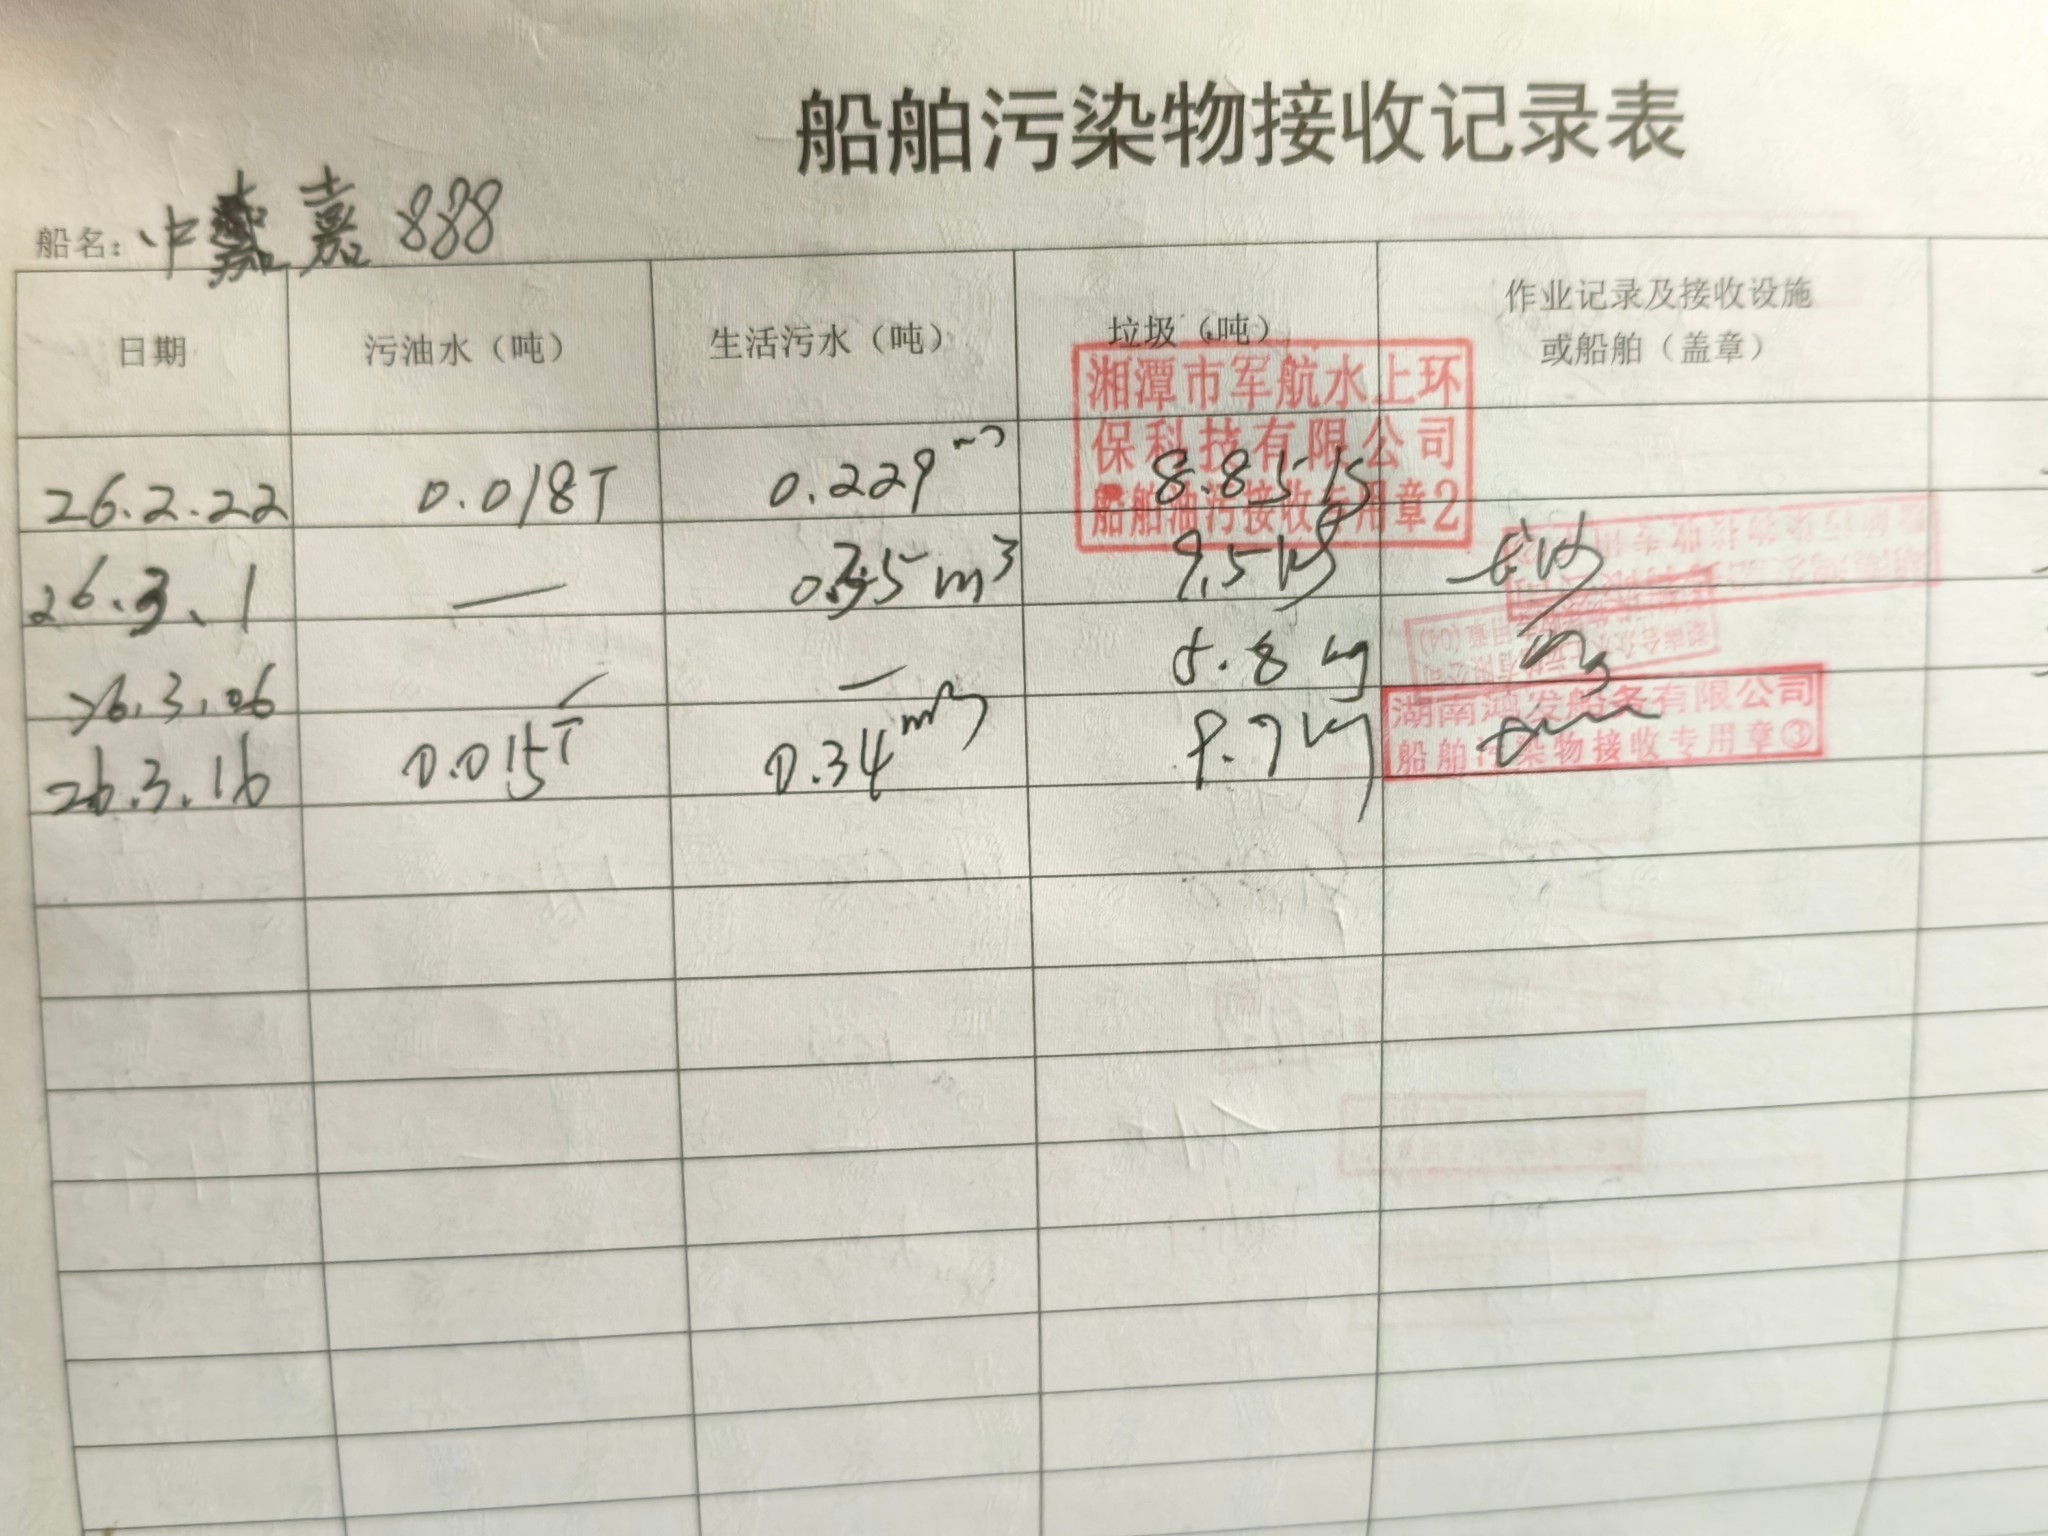 船舶污染物接收记录表
船名：中嘉888
日期 污油水（吨） 生活污水（吨） 垃圾（吨） 作业记录及接收设施或船舶（盖章）
湘潭市军航水上环
保科技有限公司
船舶油污接收专用章2
26.2.22 0.018T 0.229 8.85
26.3.1 — m³ 9.5kg 长沙
26.3.06 — — 5.8 kg
26.3.16 0.015T 0.34 m³ 9.7kg
湖南鸿发船务有限公司
船舶污染物接收专用章③